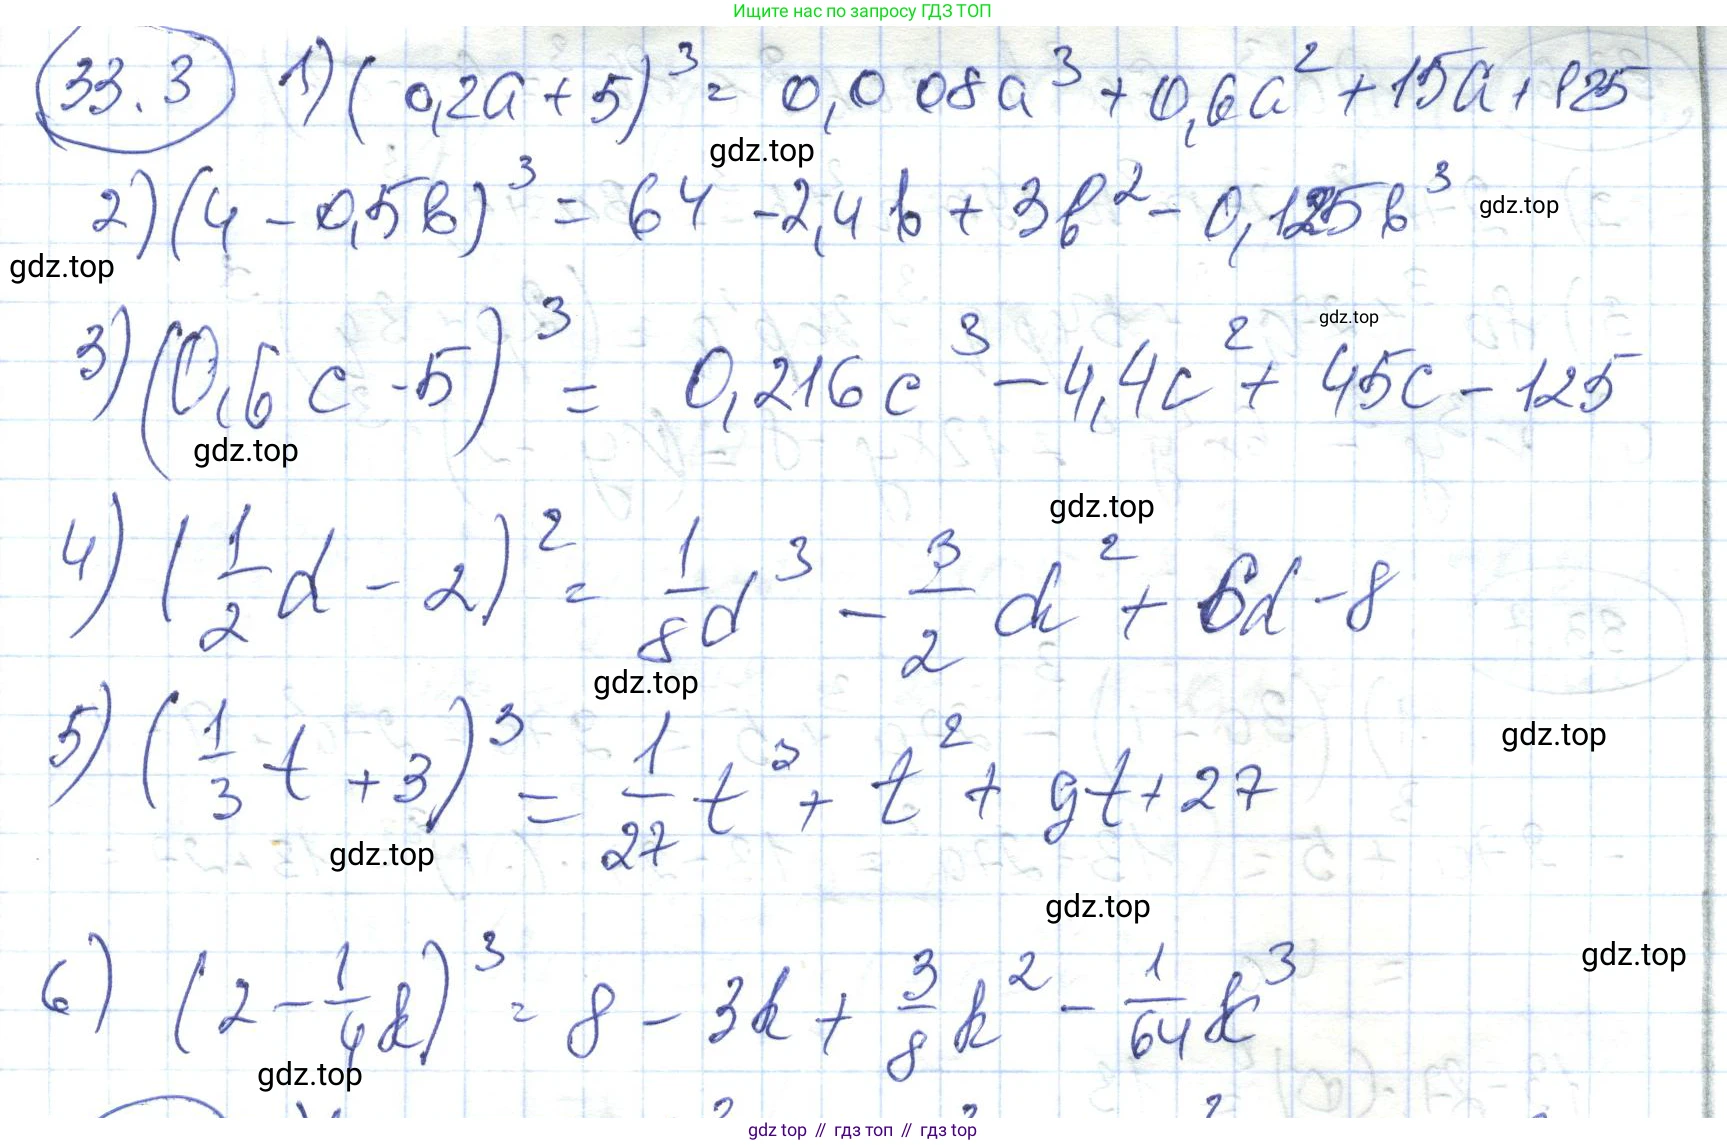 Ищите нас по запросу ГДЗ ТОП
33.3 1) (0,2a + 5)³ = 0,008a³ + 0,6a² + 15a + 125
gdz.top
2) (4 - 0,5b)³ = 64 - 2,4b + 3b² - 0,125b³ gdz.top
gdz.top
gdz.top
3) (0,6c - 5)³ = 0,216c³ - 4,4c² + 45c - 125
gdz.top
gdz.top
4) (1/2 d - 2)² = 1/8 d³ - 3/2 d² + 6d - 8
gdz.top
gdz.top
5) (1/3 t + 3)³ = 1/27 t³ + t² + 9t + 27
gdz.top
gdz.top
gdz.top
6) (2 - 1/4 k)³ = 8 - 3k + 3/8 k² - 1/64 k³
gdz.top
gdz.top // гдз топ // гдз top